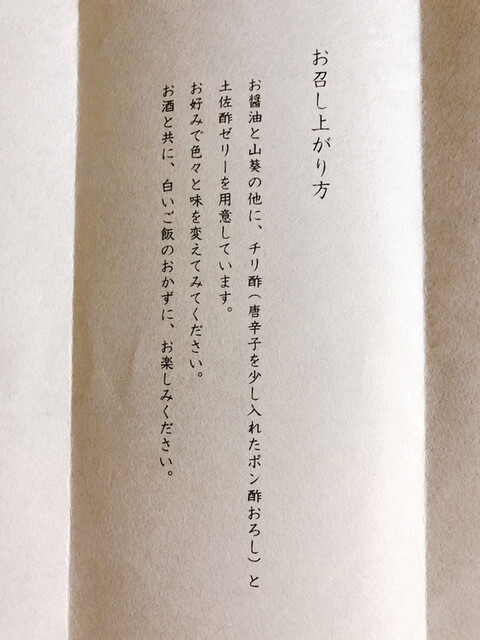 お召し上がり方
お醤油と山葵の他に、チリ酢(唐辛子を少し入れたポン酢おろし)と
土佐酢ゼリーを用意しています。
お好みで色々と味を変えてみてください。
お酒と共に、白いご飯のおかずに、お楽しみください。